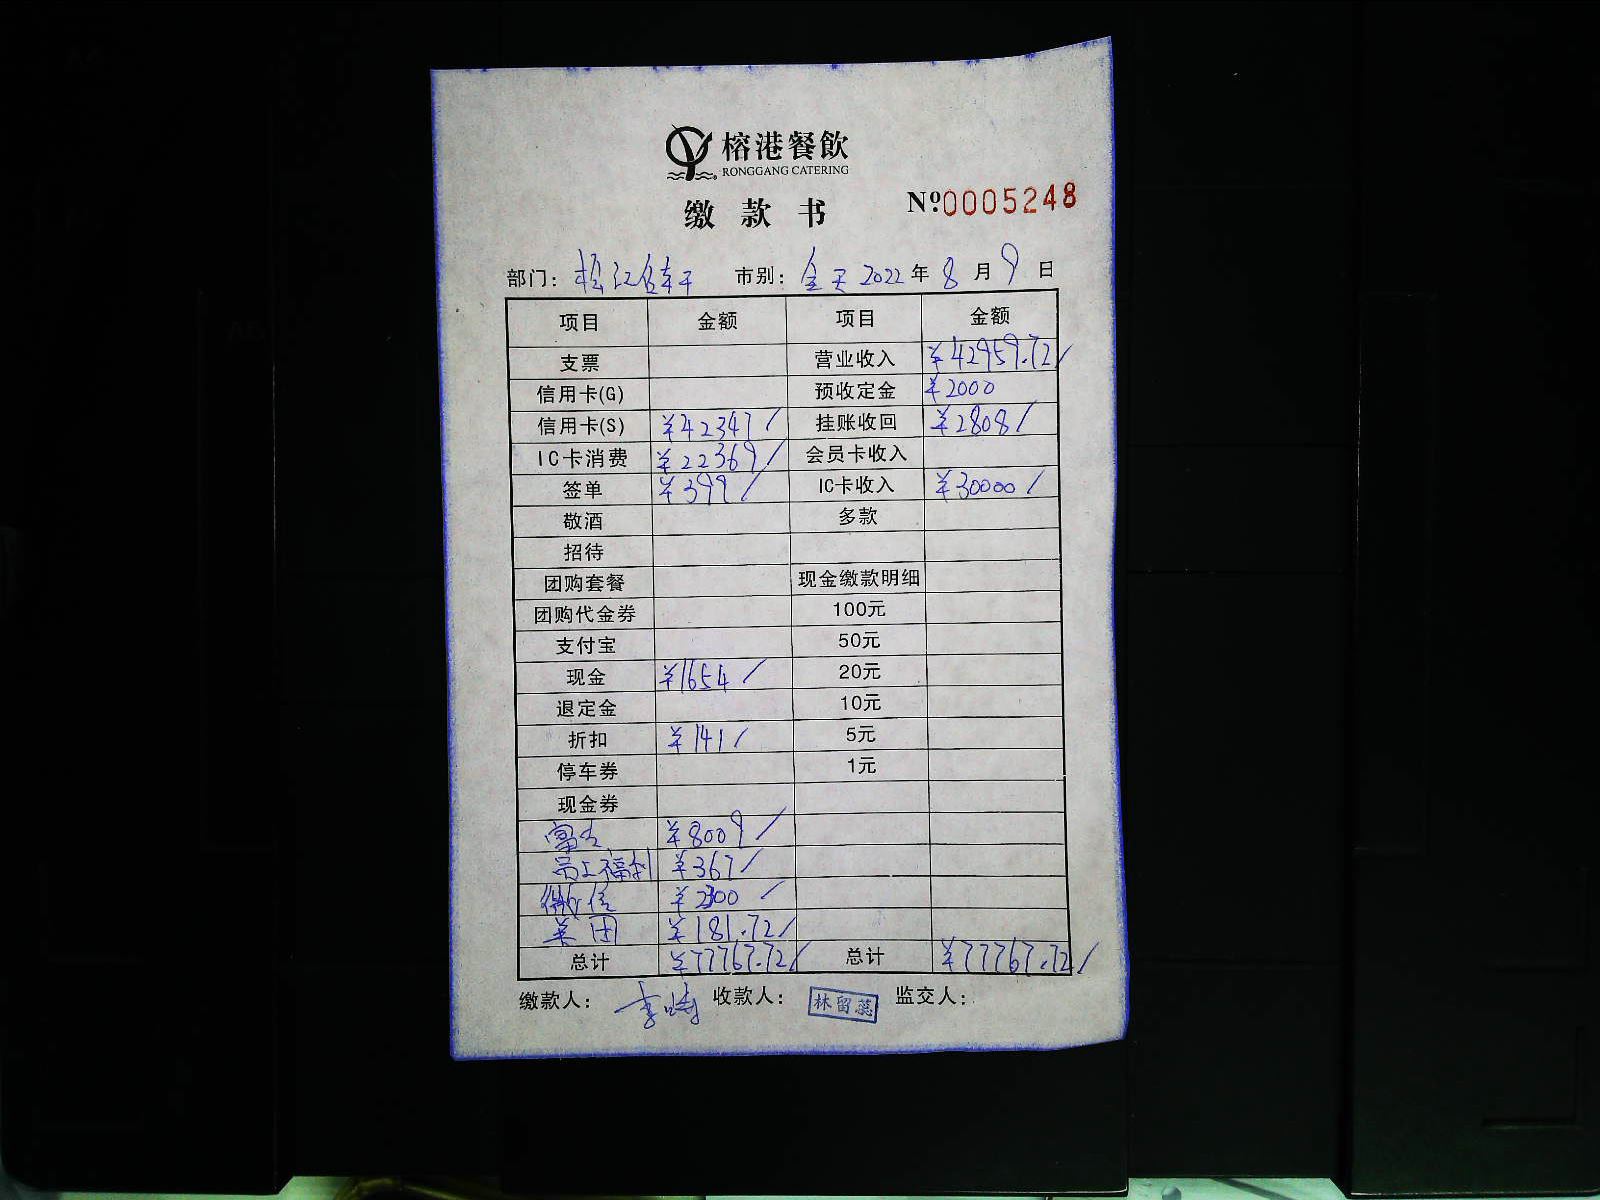 榕港餐飲
RONGGANG CATERING
缴款书 Nº0005248
部门: 松江 市别: 全天 2022年8月9日
项目 金额 项目 金额
支票 营业收入 ¥42959.72
信用卡(G) 预收定金 ¥2000
信用卡(S) ¥42347 挂账收回 ¥2808
IC卡消费 ¥22369 会员卡收入
签单 ¥399 IC卡收入 ¥30000
敬酒 多款
招待
团购套餐 现金缴款明细
团购代金券 100元
支付宝 50元
现金 ¥1654 20元
退定金 10元
折扣 ¥141 5元
停车券 1元
现金券
¥8009
员工福利 ¥367
微信 ¥2300
美团 ¥181.72
总计 ¥77767.72 总计 ¥77767.72
缴款人: 李 收款人: 林留蕊 监交人: